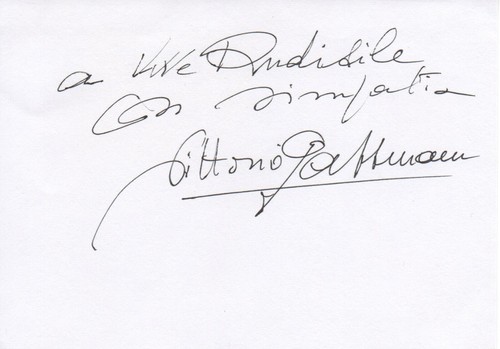 a Uwe Rudisile
con simpatia
Vittorio Gassmann